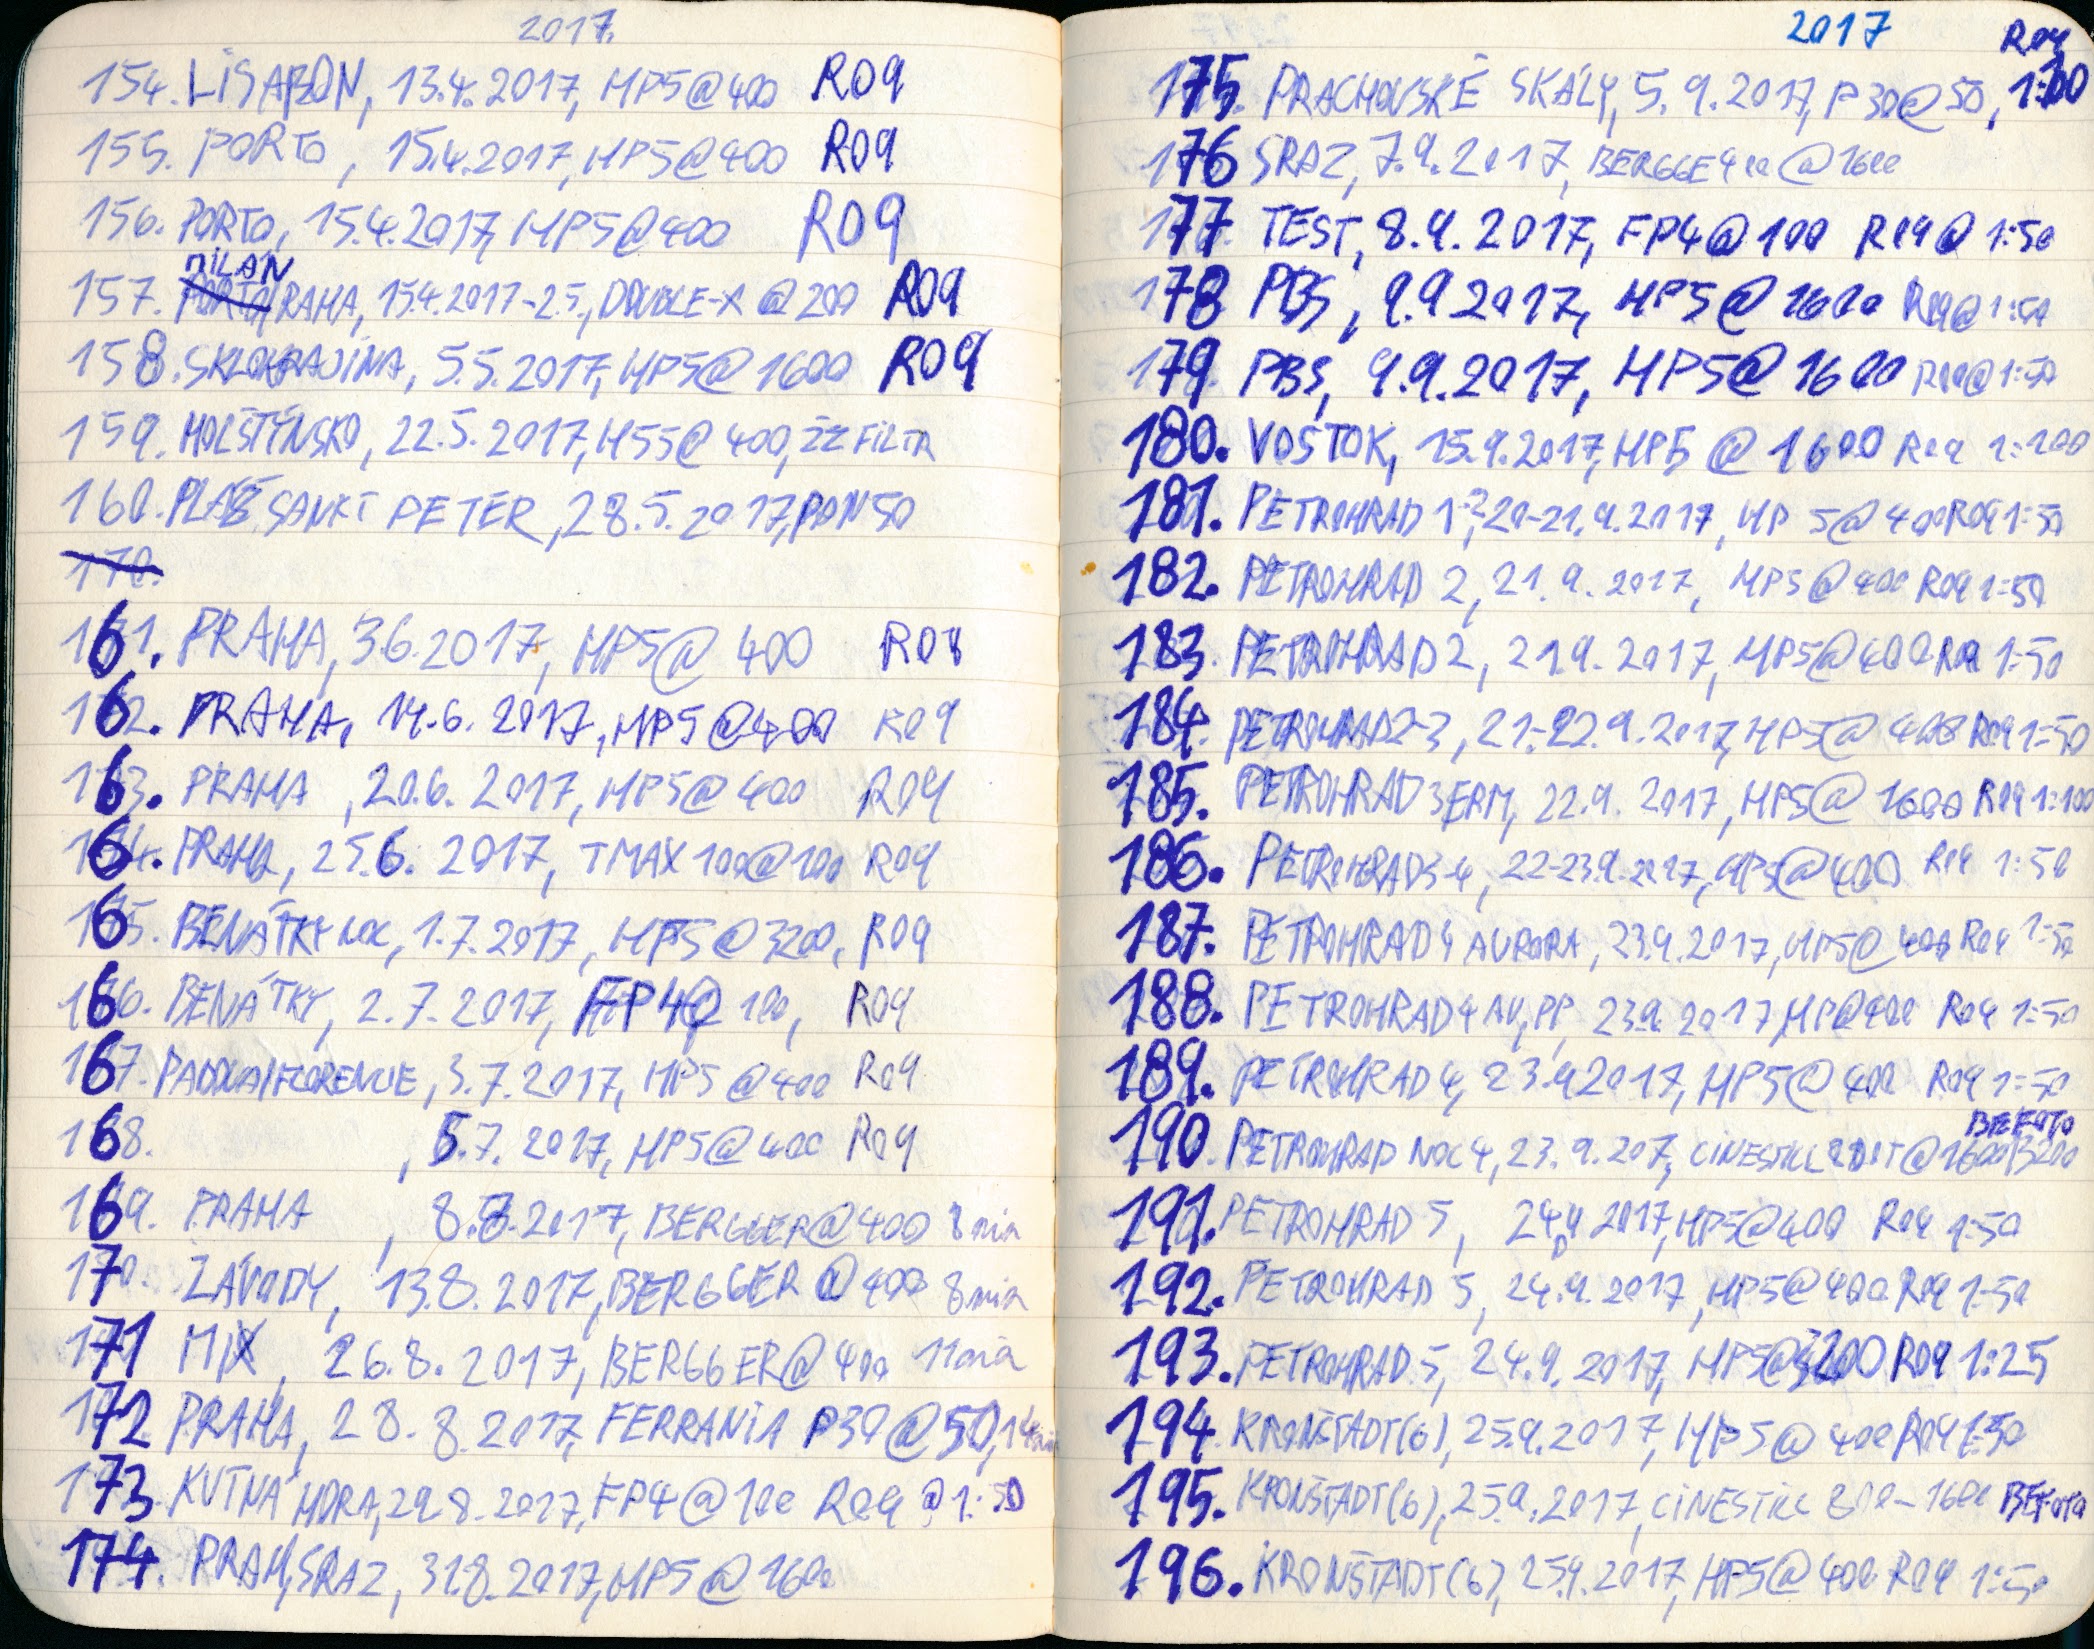 2017.
154. LISABON, 13.4.2017, HP5@400 R09
155. PORTO, 15.4.2017, HP5@400 R09
156. PORTO, 15.4.2017, HP5@400 R09
MILAN
157. PORTO, RAHA, 15.4.2017-2.5., DOUBLE-X @ 200 R09
158. 5.5.2017, HP5@1600 R09
159. HOLŠTÝNSKO, 22.5.2017, @400, ŽZ FILTR
160. PLÁŽ SANKT PETER, 28.5.2017, PAN50
170.
161. PRAHA, 3.6.2017, HP5@ 400 R09
162. PRAHA, 14.6.2017, HP5@400 R09
163. PRAHA, 20.6.2017, HP5@400 R09
164. PRAHA, 25.6.2017, TMAX 100@100 R09
165. BENÁTKY NOC, 1.7.2017, HP5@3200, R09
166. BENÁTKY, 2.7.2017, FP4@ 100, R09
167. PADOVA/FLORENCIE, 3.7.2017, HP5@400 R09
168. , 5.7.2017, HP5@400 R09
169. PRAHA, 8.8.2017, BERGGER@400 8 min
170. ZÁVODY, 13.8.2017, BERGGER@400 8 min
171 MIX, 26.8.2017, BERGGER@400 11 min
172 PRAHA, 28.8.2017, FERRANIA P30@50, 14 min
173. KUTNÁ HORA, 29.8.2017, FP4@100 R09 @ 1:50
174. PRAH, SRAZ, 31.8.2017, HP5@1600
2017
R09
175. PRACHOVSKÉ SKÁLY, 5.9.2017, P30@50, 1:100
176 SRAZ, 7.9.2017, BERGGE400@1600
177 TEST, 8.9.2017, FP4@100 R09@ 1:50
178 PBS, 9.9.2017, HP5@1600 R09@1:50
179 PBS, 9.9.2017, HP5@1600 R09@1:50
180. VOSTOK, 15.9.2017, HP5@1600 R09 1:100
181. PETROHRAD 1-2, 20-21.9.2017, HP5@400 R09 1:50
182. PETROHRAD 2, 21.9.2017, HP5@400 R09 1:50
183. PETROHRAD 2, 21.9.2017, HP5@400 R09 1:50
184. PETROHRAD 2-3, 21-22.9.2017, HP5@400 R09 1:50
185. PETROHRAD 3 ERM, 22.9.2017, HP5@1600 R09 1:100
186. PETROHRAD 3-4, 22-23.9.2017, HP5@400 R09 1:50
187. PETROHRAD 4 AURORA, 23.9.2017, HP5@400 R09 1:50
188. PETROHRAD 4 AU, PP, 23.9.2017, HP@400 R09 1:50
189. PETROHRAD 4, 23.9.2017, HP5@400 R09 1:50
190. PETROHRAD NOC 4, 23.9.207, CINESTILL 800T@1600/3200
191. PETROHRAD 5, 24.9.2017, HP5@400 R09 1:50
192. PETROHRAD 5, 24.9.2017, HP5@400 R09 1:50
193. PETROHRAD 5, 24.9.2017, HP5@3200 R09 1:25
194. KRONŠTADT(6), 25.9.2017, HP5@400 R09 1:50
195. KRONŠTADT(6), 25.9.2017, CINESTILL 800-1600
196. KRONŠTADT(6), 25.9.2017, HP5@400 R09 1:50